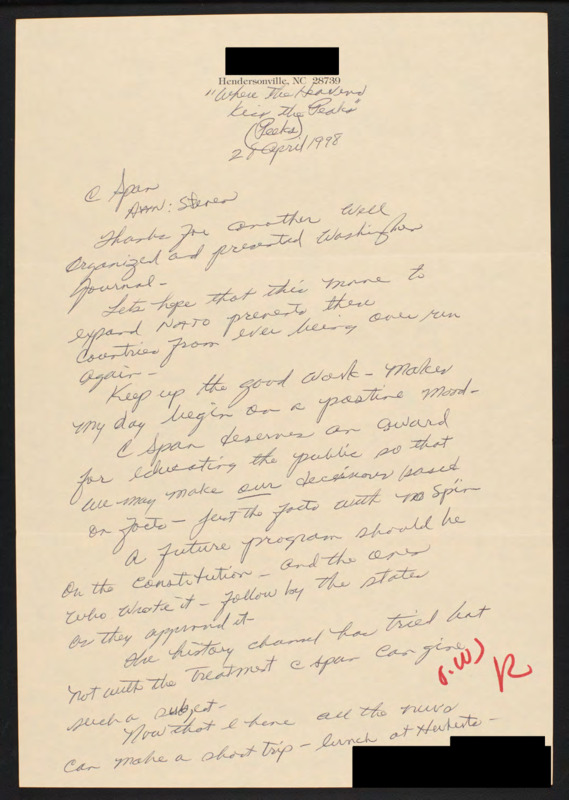 Hendersonville, NC 28739
"Where The Heavens
Kiss the Peaks"
(Peeks)
28 April 1998
C Span
Attn: Steven
Thanks for another well
organized and presented Washington
Journal -
Lets hope that this move to
expand NATO prevents these
Countries from ever being over run
again -
Keep up the good work - makes
my day begin on a positive mood -
C Span deserves an award
for educating the public so that
we may make our decisions based
on facts - just the facts with no spin
A future program should be
on the Constitution - and the ones
who wrote it - follow by the states
as they approved it -
The history channel has tried but
not with the treatment C Span can give
such a subject -
Now that I have all the news
can make a short trip - lunch at
(W)
R